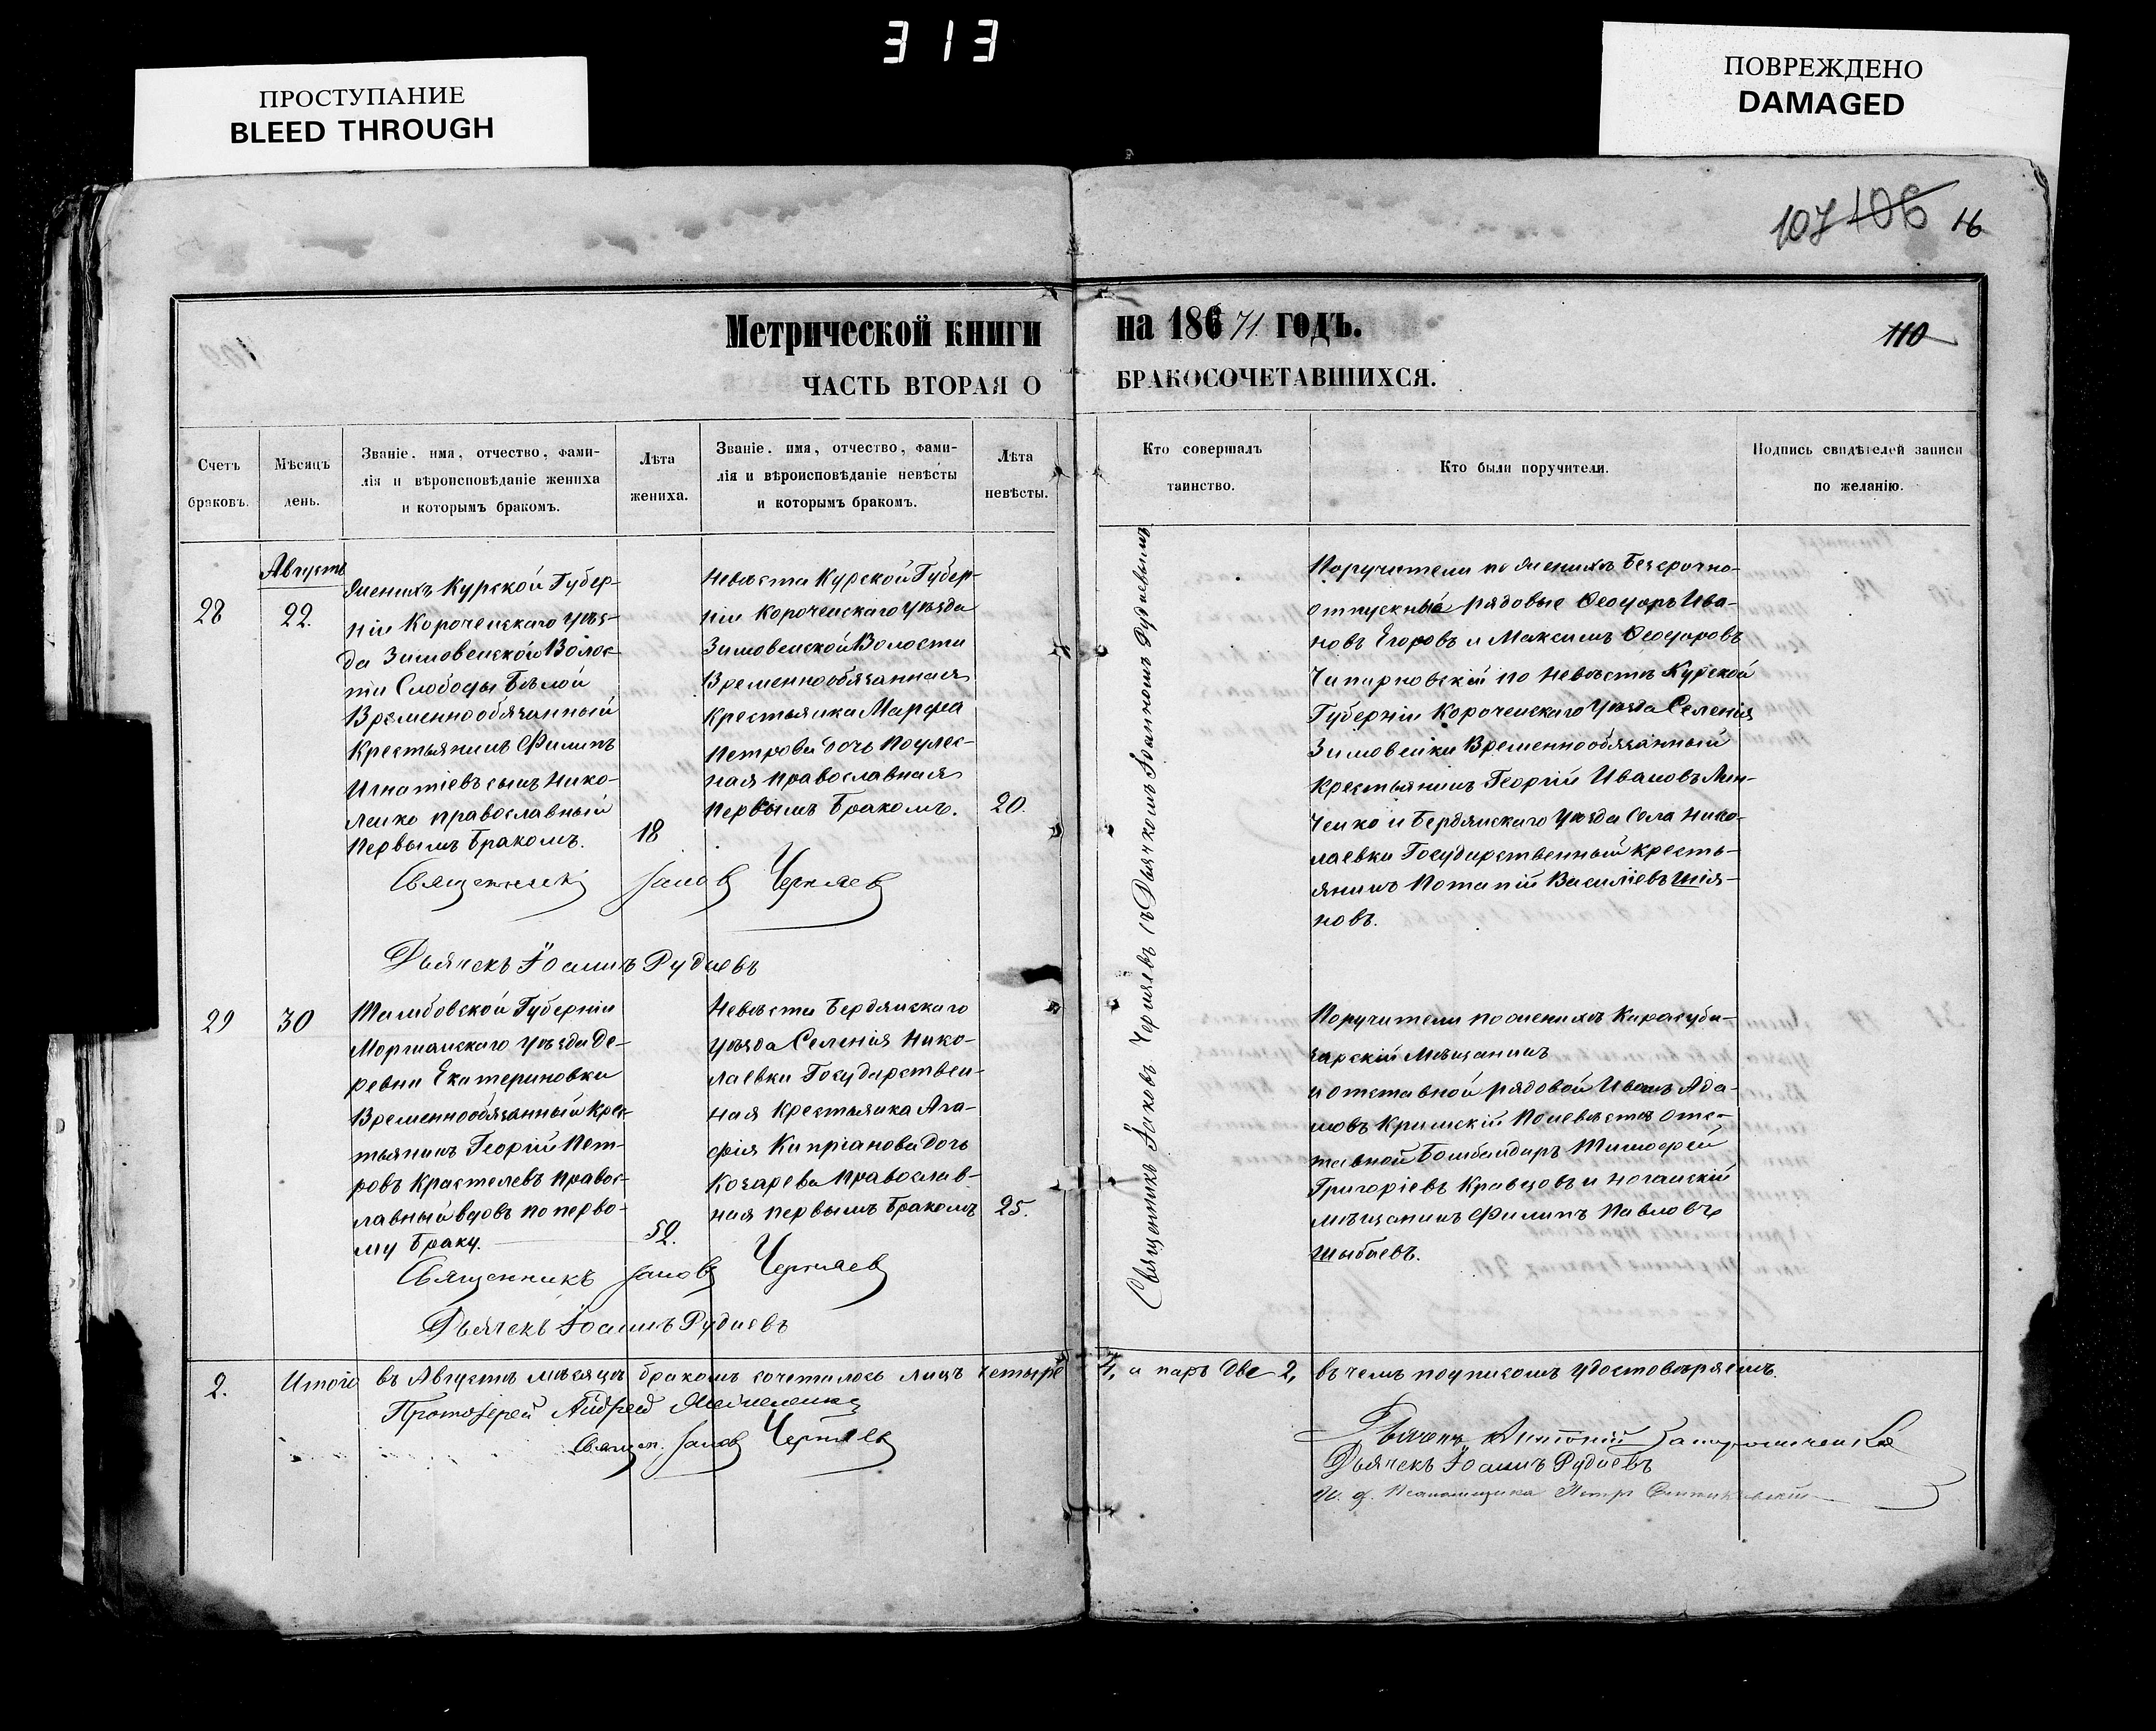 313
ПРОСТУПАНИЕ
BLEED THROUGH
ПОВРЕЖДЕНО
DAMAGED
107 106 16
Метрической книги на 186 71 годъ.
110
ЧАСТЬ ВТОРАЯ О БРАКОСОЧЕТАВШИХСЯ.
Счетъ
браковъ.
Мѣсяцъ
день.
Званіе, имя, отчество, фами-
лія и вѣроисповѣданіе жениха
и которымъ бракомъ.
Лѣта
жениха.
Званіе, имя, отчество, фами-
лія и вѣроисповѣданіе невѣсты
и которымъ бракомъ.
Лѣта
невѣсты.
Кто совершалъ
таинство.
Кто были поручители.
Подпись свидѣтелей записи
по желанію.
28
Августъ
22.
Женихъ Курской Губер-
ніи Короченскаго уѣз-
да Зимовенской Волос-
ти Слободы Бѣлой
Временнообязанный
Крестьянинъ Филипъ
Игнатіевъ сынъ Нико-
ленко православный
Первымъ бракомъ.
18
Невѣста Курской Губер-
ніи Короченскаго уѣзда
Зимовенской Волости
Временнообязанная
Крестьянка Марфа
Петрова дочь
ная православная
Первымъ бракомъ.
20.
Священникъ Іаковъ Черняевъ
Дьячекъ Іоаннъ Рудневъ
Священникъ Іаковъ Черняевъ съ Дьячкомъ Іоанномъ Рудневымъ
Поручители по женихѣ Безсрочно-
отпускные рядовые Ѳеодоръ Ива-
новъ Егоровъ и Максимъ Ѳеодоровъ
по Невѣстѣ Курской
Губерніи Короченскаго уѣзда Селенія
Зимовейки Временнообязанный
Крестьянинъ Георгій Ивановъ
и Бердянскаго уѣзда Села Нико-
лаевки Государственный кресть-
янинъ Потапій Василіевъ Шія-
новъ.
29
30
Тамбовской Губерніи
Моршанскаго уѣзда Де-
ревни Екатериновки
Временнообязанный Крес-
тьянинъ Георгій Пет-
ровъ Крастелевъ Правос-
лавный вдовъ по перво-
му браку.
52.
Невѣста Бердянскаго
уѣзда Селенія Нико-
лаевки Государствен-
ная Крестьянка Ага-
фія Кипріанова дочь
Козарева Православ-
ная первымъ бракомъ
25.
Священникъ Іаковъ Черняевъ
Дьячекъ Іоаннъ Рудневъ
Поручители по женихѣ Карасуба-
зарскій Мѣщанинъ
и отставной рядовой Иванъ Ада-
мовъ Кримскій По невѣстѣ Отс-
тавной Бомбандиръ Тимофей
Григоріевъ Кравцовъ и Ногайскій
мѣщанинъ Филипъ Павловъ
Шыбаевъ.
2.
Итого въ Августѣ мѣсяцѣ бракомъ сочеталось лицъ четыре 4, а паръ две 2, въ чемъ подписомъ удостовѣряемъ.
Протоіерей Андрей
Священ. Іаковъ Черняевъ
Дьячекъ Антоній
Дьячекъ Іоаннъ Рудневъ
И. д. Псаломщика Петръ